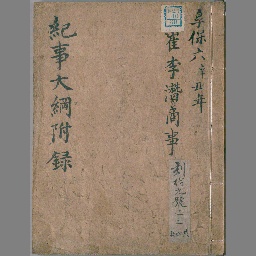 享保六辛丑年
崔李潛商事
紀事大綱附録